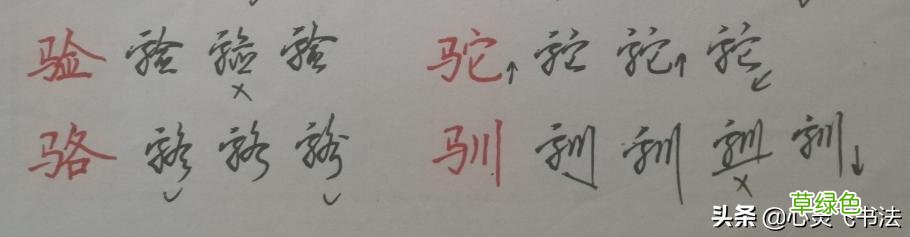 验 验 验 验 驼 驼 驼 驼
骆 骆 骆 骆 驯 驯 驯 驯 驯
草绿色
头条 @心灵飞书法